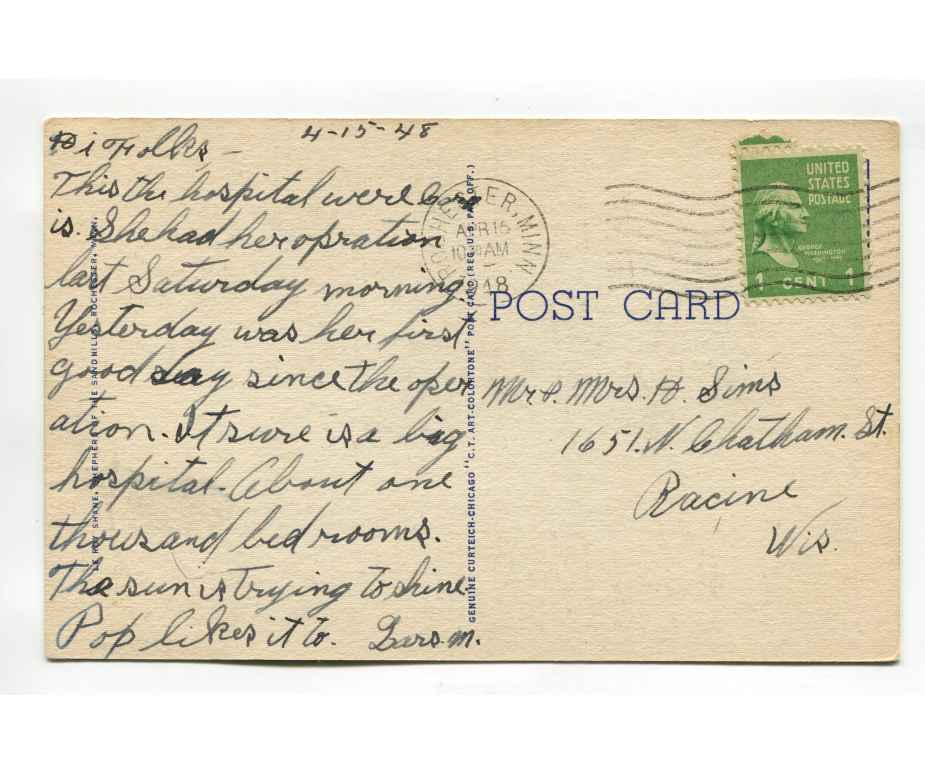 4-15-48
Hi Folks,—
This the hospital were Cora
is. She had her opration
last Saturday morning.
Yesterday was her first
good day since the oper
ation. It sure is a big
hospital. About one
thousand bed rooms.
The sun is trying to shine.
Pop likes it to. Lars. M.
LE ROY SHANE, SHEPHERD OF THE SANDHILLS, ROCHESTER, MINN.
GENUINE CURTEICH-CHICAGO "C.T. ART-COLORTONE" POST CARD (REG. U.S. PAT. OFF.)
ROCHESTER, MINN
APR 15
10 AM
1948
UNITED
STATES
POSTAGE
GEORGE
WASHINGTON
1 CENT 1
POST CARD
Mr & Mrs. H. Sims
1651. N. Chatham. St.
Racine
Wis.